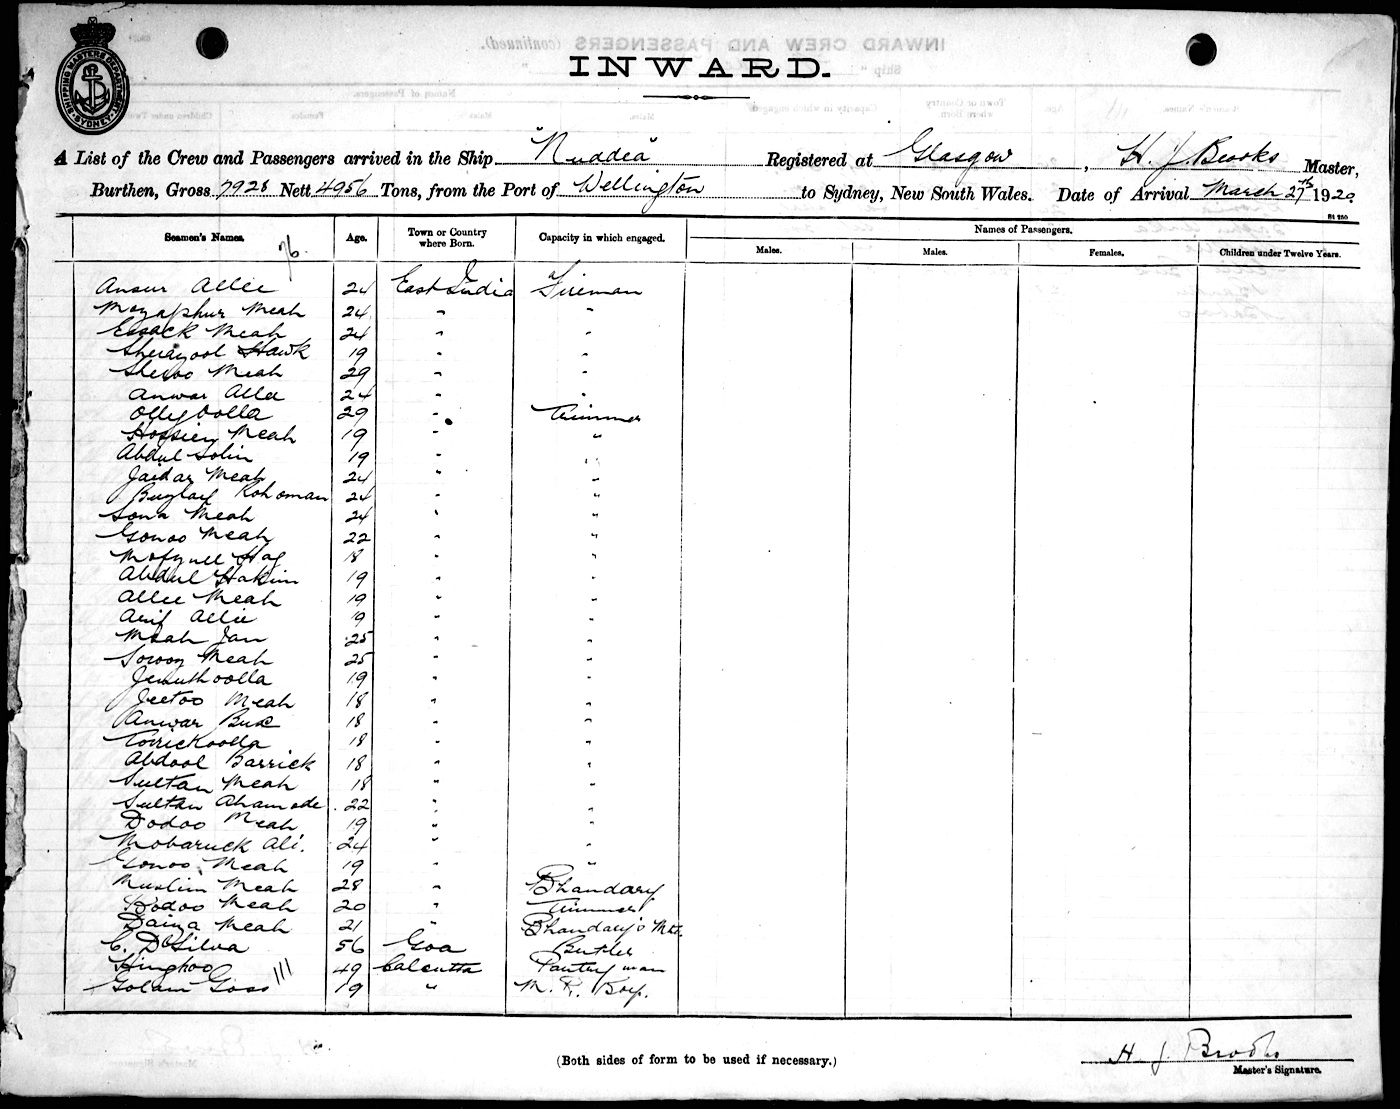 SHIPPING MASTERS DEPARTMENT SYDNEY
INWARD.
A List of the Crew and Passengers arrived in the Ship "Nuddea" Registered at Glasgow, H. J. Brooks Master,
Burthen, Gross 7928 Nett 4956 Tons, from the Port of Wellington to Sydney, New South Wales. Date of Arrival March 27th 1920
St 250
Seamen's Names. Age. Town or Country where Born. Capacity in which engaged. Names of Passengers.
76. Males. Males. Females. Children under Twelve Years.
Ansur Allee 24 East India Fireman
Mozaphur Meah 24 " "
Essack Meah 24 " "
Sherazool Hawk 19 " "
Sheroo Meah 29 " "
Anwar Alla 24 " "
Ollyoolla 29 " Trimmer
Hossien Meah 19 " "
Abdul Solim 19 " "
Jaidar Meah 24 " "
Rohoman 24 " "
Sona Meah 24 " "
Gonoo Meah 22 " "
Mofyull Hag 18 " "
Abdul Hakim 19 " "
Allee Meah 19 " "
Arif Allie 19 " "
Meah Jan 25 " "
Meah 25 " "
Jenuthoolla 19 " "
Jeetoo Meah 18 " "
Anwar Bux 18 " "
Torrickoolla 18 " "
Abdool Barrick 18 " "
Sultan Meah 18 " "
Sultan Ahamode 22 " "
Dodoo Meah 19 " "
Mobaruck Ali. 24 " "
Gonoo Meah 19 " "
Muslim Meah 28 " Bhandary
Meah 20 " Trimmer
Daiya Meah 21 " Bhandary's Mte.
C. D'Silva 56 Goa Butler
Hinghoo 49 Calcutta Pantryman
Golam Goss 111 19 " M. R. Boy.
(Both sides of form to be used if necessary.)
H. J. Brooks
Master's Signature.